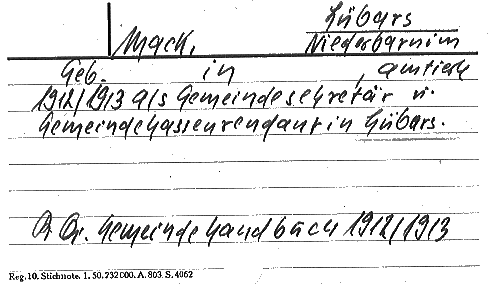 Lübars
Mack, Niederbarnim
Geb. in , amtiert
1912/1913 als Gemeindesekretär u.
Gemeindekassenrendant in Lübars.
Gemeindehandbuch 1912/1913
Reg. 10. Stichnote. 1. 50. 232000. A. 803. S. 4062